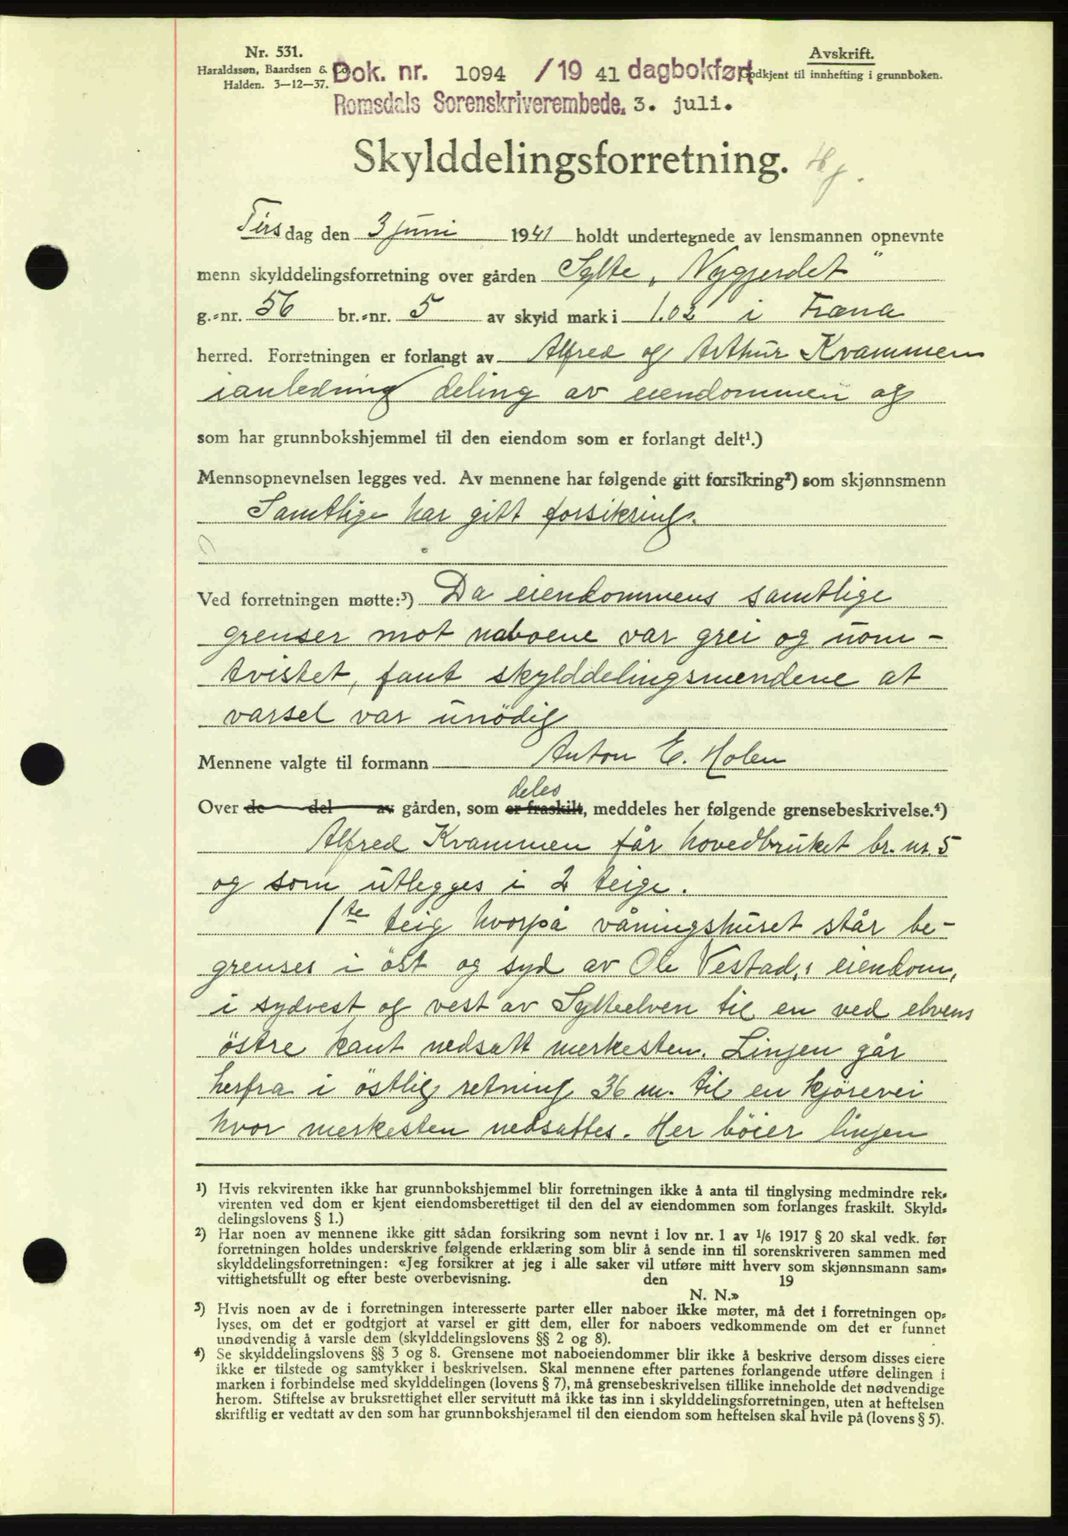 Nr. 531.
Haraldssøn, Baardsen & Co.
Halden. 3-12-37.
Avskrift.
Godkjent til innhefting i grunnboken.
Dok. nr. 1094 /19 41 dagbokført
Romsdals Sorenskriverembede. 3. juli.
Skylddelingsforretning.
Tirsdag den 3 juni 1941 holdt undertegnede av lensmannen opnevnte
menn skylddelingsforretning over gården Sylte „Nygjerdet"
g.-nr. 56 br.-nr. 5 av skyld mark i 1.02 i Fræna
herred. Forretningen er forlangt av Alfred og Arthur Kvammen
i anledning deling av eiendommen og
som har grunnbokshjemmel til den eiendom som er forlangt delt¹.)
Mennsopnevnelsen legges ved. Av mennene har følgende gitt forsikring²) som skjønnsmenn
Samtlige har gitt forsikring.
Ved forretningen møtte:³) Da eiendommens samtlige
grenser mot naboene var grei og uom-
tvistet, fant skylddelingsmendene at
varsel var unödig
Mennene valgte til formann Anton E. Holen
deles
Over de del av gården, som er fraskilt, meddeles her følgende grensebeskrivelse.⁴)
Alfred Kvammen får hovedbruket br. nr. 5
og som utlegges i 2 teige.
1te teig hvorpå våningshuset står be-
grenses i öst og syd av Ole Vestad,s eiendom,
i sydvest og vest av Sylteelven til en ved elvens
östre kant nedsatt merkesten. Linjen går
herfra i östlig retning 36 m. til en kjörevei
hvor merkesten nedsattes. Her böier linjen
¹) Hvis rekvirenten ikke har grunnbokshjemmel blir forretningen ikke å anta til tinglysing medmindre rek-
virenten ved dom er kjent eiendomsberettiget til den del av eiendommen som forlanges fraskilt. Skyld-
delingslovens § 1.)
²) Har noen av mennene ikke gitt sådan forsikring som nevnt i lov nr. 1 av 1/6 1917 § 20 skal vedk. før
forretningen holdes underskrive følgende erklæring som blir å sende inn til sorenskriveren sammen med
skylddelingsforretningen: «Jeg forsikrer at jeg i alle saker vil utføre mitt hverv som skjønnsmann sam-
vittighetsfullt og efter beste overbevisning. den 19
N. N.»
³) Hvis noen av de i forretningen interesserte parter eller naboer ikke møter, må det i forretningen op-
lyses, om det er godtgjort at varsel er gitt dem, eller for naboers vedkommende om det er funnet
unødvendig å varsle dem (skylddelingslovens §§ 2 og 8).
⁴) Se skylddelingslovens §§ 3 og 8. Grensene mot naboeiendommer blir ikke å beskrive dersom disses eiere
ikke er tilstede og samtykker i beskrivelsen. Skal mennene efter partenes forlangende utføre delingen i
marken i forbindelse med skylddelingen (lovens § 7), må grensebeskrivelsen tillike inneholde det nødvendige
herom. Stiftelse av bruksrettighet eller servitutt må ikke tas inn i skylddelingsforretningen, uten at heftelsen
skriftlig er vedtatt av den som har grunnbokshjemmel til den eiendom som heftelsen skal hvile på (lovens § 5).